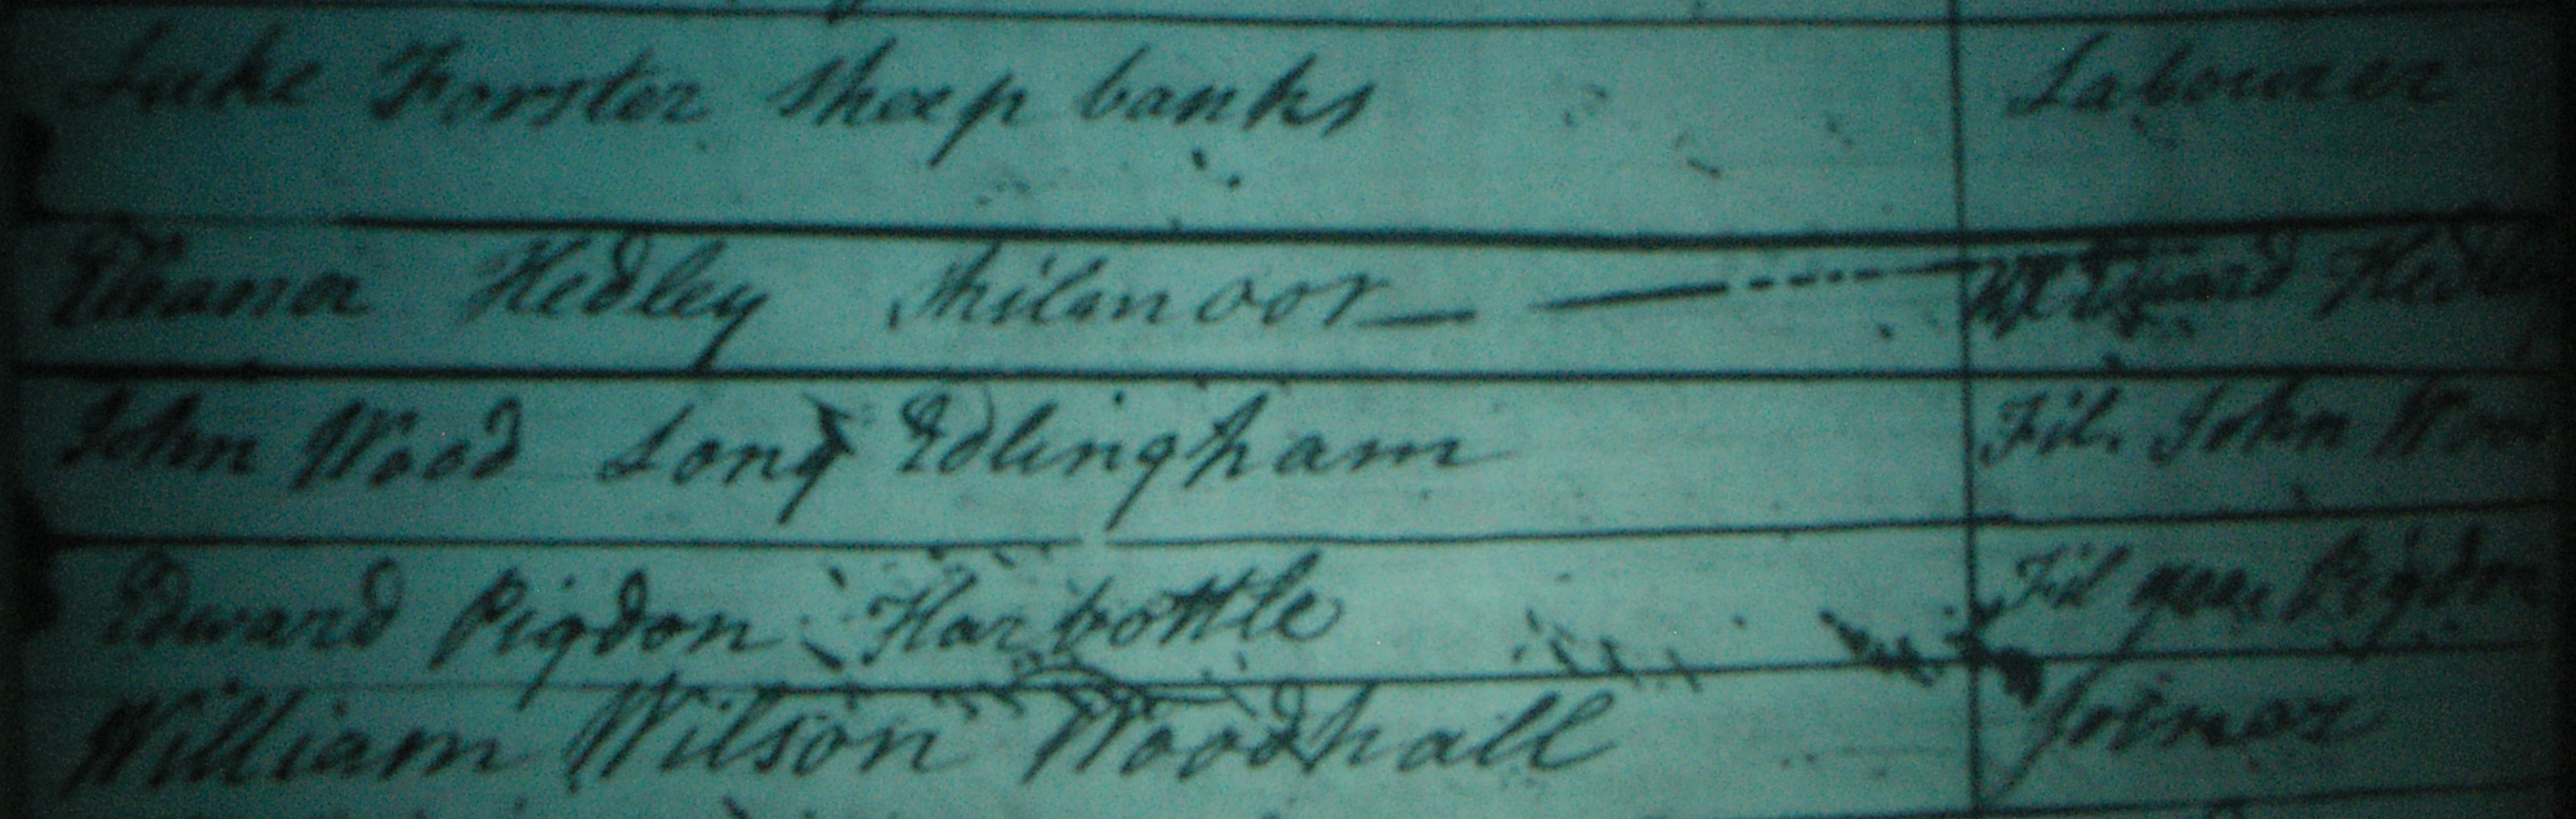 Luke Forster Sheep banks Labourer
Hedley Shilmoor Edward
John Wood Long Edlingham Fil. John
Edward Pigdon Harbottle Fil Pigdon
William Wilson Woodhall Joiner